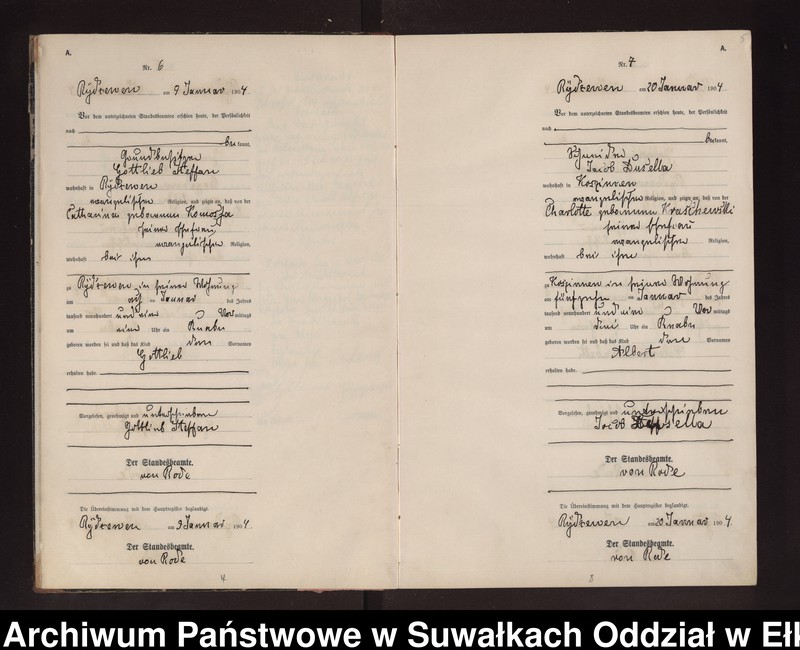 A.
Nr. 6
Rÿdzewen am 9 Januar 1904
Vor dem unterzeichneten Standesbeamten erschien heute, der Persönlichkeit
nach
bekannt,
Grundbesitzer
Gottlieb Steffan
wohnhaft in Rÿdzewen
evangelischer Religion, und zeigte an, daß von der
Catharina geborenen Komossa
seiner Ehefrau
evangelischer Religion,
wohnhaft bei ihm
zu Rÿdzewen in seiner Wohnung
am Januar des Jahres
tausend neunhundert und vier Vormittags
um ein Uhr ein Knabe
geboren worden sei und daß das Kind den Vornamen
Gottlieb
erhalten habe.
Vorgelesen, genehmigt und unterschrieben
Gottlieb Steffan
Der Standesbeamte.
von Rode
Die Übereinstimmung mit dem Hauptregister beglaubigt.
Rÿdzewen am 9 Januar 1904.
Der Standesbeamte.
von Rode
4
5
A.
Nr. 7
Rÿdzewen am 20 Januar 1904
Vor dem unterzeichneten Standesbeamten erschien heute, der Persönlichkeit
nach
bekannt,
Schmied
Jacob Dusella
wohnhaft in Koszinnen
evangelischer Religion, und zeigte an, daß von der
Charlotte geborenen Kraschewski
seiner Ehefrau
evangelischer Religion,
wohnhaft bei ihm
zu Koszinnen in seiner Wohnung
am fünfzehn Januar des Jahres
tausend neunhundert und vier Vormittags
um drei Uhr ein Knabe
geboren worden sei und daß das Kind den Vornamen
Albert
erhalten habe.
Vorgelesen, genehmigt und unterschrieben
Jacob
Der Standesbeamte.
von Rode
Die Übereinstimmung mit dem Hauptregister beglaubigt.
Rÿdzewen am 20 Januar 1904.
Der Standesbeamte.
von Rode
8
Archiwum Państwowe w Suwałkach Oddział w Ełk